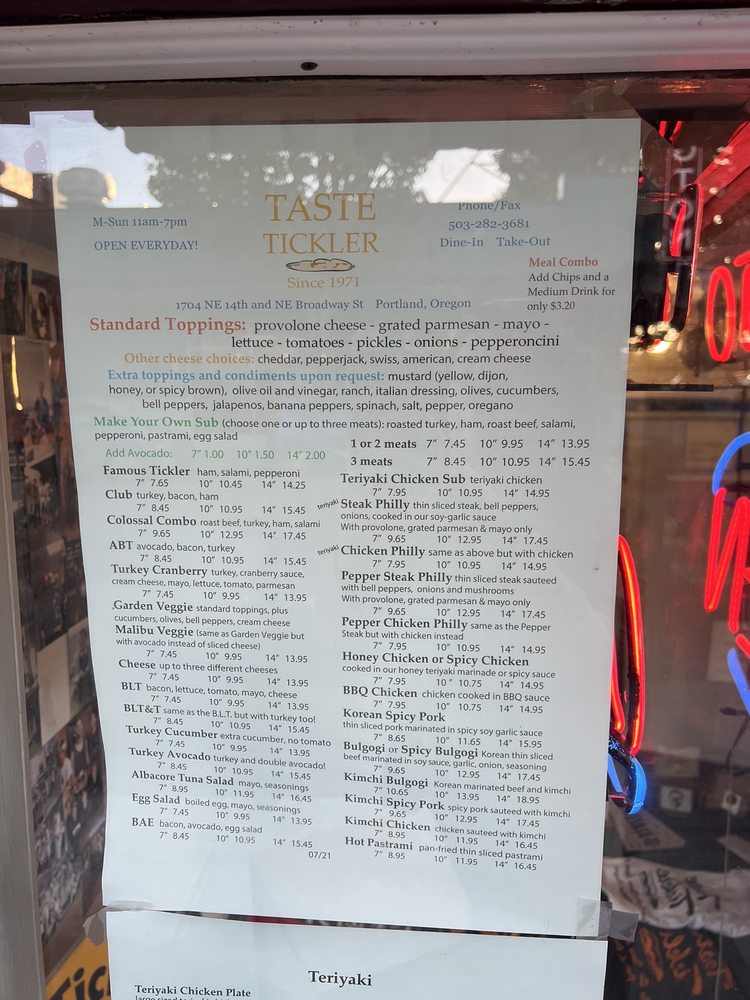 M-Sun 11am-7pm
OPEN EVERYDAY!
TASTE
TICKLER
Since 1971
Phone/Fax
503-282-3681
Dine-In Take-Out
Meal Combo
Add Chips and a
Medium Drink for
only $3.20
1704 NE 14th and NE Broadway St Portland, Oregon
Standard Toppings: provolone cheese - grated parmesan - mayo -
lettuce - tomatoes - pickles - onions - pepperoncini
Other cheese choices: cheddar, pepperjack, swiss, american, cream cheese
Extra toppings and condiments upon request: mustard (yellow, dijon,
honey, or spicy brown), olive oil and vinegar, ranch, italian dressing, olives, cucumbers,
bell peppers, jalapenos, banana peppers, spinach, salt, pepper, oregano
Make Your Own Sub (choose one or up to three meats): roasted turkey, ham, roast beef, salami,
pepperoni, pastrami, egg salad
Add Avocado: 7" 1.00 10" 1.50 14" 2.00
1 or 2 meats 7" 7.45 10" 9.95 14" 13.95
3 meats 7" 8.45 10" 10.95 14" 15.45
Famous Tickler ham, salami, pepperoni
7" 7.65 10" 10.45 14" 14.25
Club turkey, bacon, ham
7" 8.45 10" 10.95 14" 15.45
Colossal Combo roast beef, turkey, ham, salami
7" 9.65 10" 12.95 14" 17.45
ABT avocado, bacon, turkey
7" 8.45 10" 10.95 14" 15.45
Turkey Cranberry turkey, cranberry sauce,
cream cheese, mayo, lettuce, tomato, parmesan
7" 7.45 10" 9.95 14" 13.95
Garden Veggie standard toppings, plus
cucumbers, olives, bell peppers, cream cheese
Malibu Veggie (same as Garden Veggie but
with avocado instead of sliced cheese)
7" 7.45 10" 9.95 14" 13.95
Cheese up to three different cheeses
7" 7.45 10" 9.95 14" 13.95
BLT bacon, lettuce, tomato, mayo, cheese
7" 7.45 10" 9.95 14" 13.95
BLT&T same as the B.L.T. but with turkey too!
7" 8.45 10" 10.95 14" 15.45
Turkey Cucumber extra cucumber, no tomato
7" 7.45 10" 9.95 14" 13.95
Turkey Avocado turkey and double avocado!
7" 8.45 10" 10.95 14" 15.45
Albacore Tuna Salad mayo, seasonings
7" 8.95 10" 11.95 14" 16.45
Egg Salad boiled egg, mayo, seasonings
7" 7.45 10" 9.95 14" 13.95
BAE bacon, avocado, egg salad
7" 8.45 10" 10.95 14" 15.45
07/21
Teriyaki Chicken Sub teriyaki chicken
7" 7.95 10" 10.95 14" 14.95
teriyaki Steak Philly thin sliced steak, bell peppers,
onions, cooked in our soy-garlic sauce
With provolone, grated parmesan & mayo only
7" 9.65 10" 12.95 14" 17.45
teriyaki Chicken Philly same as above but with chicken
7" 7.95 10" 10.95 14" 14.95
Pepper Steak Philly thin sliced steak sauteed
with bell peppers, onions and mushrooms
With provolone, grated parmesan & mayo only
7" 9.65 10" 12.95 14" 17.45
Pepper Chicken Philly same as the Pepper
Steak but with chicken instead
7" 7.95 10" 10.95 14" 14.95
Honey Chicken or Spicy Chicken
cooked in our honey teriyaki marinade or spicy sauce
7" 7.95 10" 10.75 14" 14.95
BBQ Chicken chicken cooked in BBQ sauce
7" 7.95 10" 10.75 14" 14.95
Korean Spicy Pork
thin sliced pork marinated in spicy soy garlic sauce
7" 8.65 10" 11.65 14" 15.95
Bulgogi or Spicy Bulgogi Korean thin sliced
beef marinated in soy sauce, garlic, onion, seasoning
7" 9.65 10" 12.95 14" 17.45
Kimchi Bulgogi Korean marinated beef and kimchi
7" 10.65 10" 13.95 14" 18.95
Kimchi Spicy Pork spicy pork sauteed with kimchi
7" 9.65 10" 12.95 14" 17.45
Kimchi Chicken chicken sauteed with kimchi
7" 8.95 10" 11.95 14" 16.45
Hot Pastrami pan-fried thin sliced pastrami
7" 8.95 10" 11.95 14" 16.45
Teriyaki
Teriyaki Chicken Plate